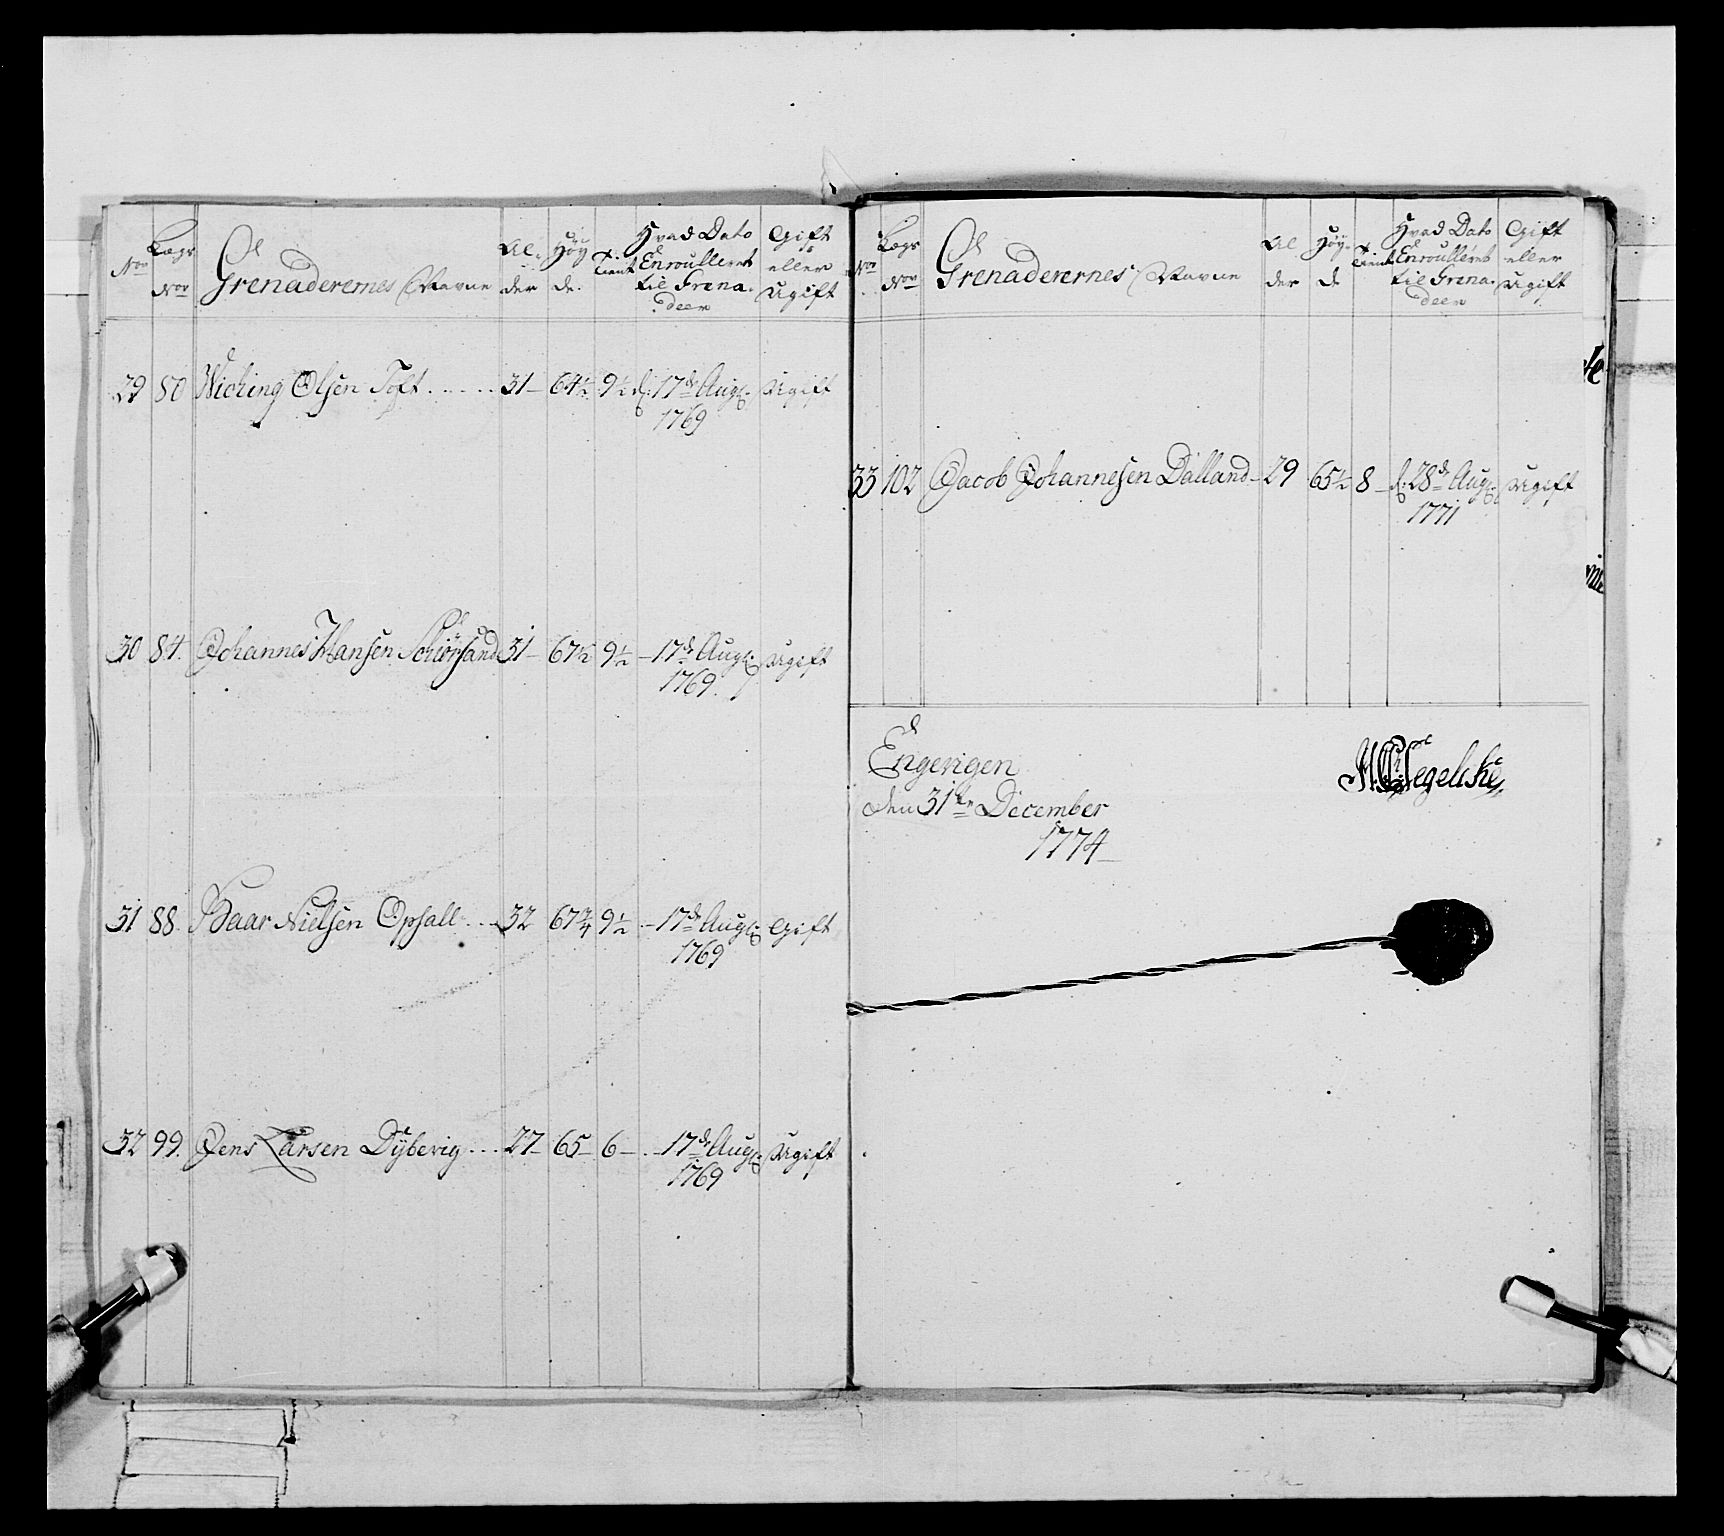 Nor Lægs Nor Grenaderernes Navne Al-der Høy-de. Tient Hvad Dato Enroulleret til Grena-deer Gift eller Ugift
29 80 Wiching Olsen Toft 31 64½ 9½ d. 17de Aug. Ugift
1769
30 84. Johannes Hansen 31 67½ 9½ 17de Aug. Ugift
1769.
31 88. Baar Nielsen Opsall 32 67¾ 9½ 17de Aug. Gift
1769
32 99. Jens Larsen Dyberig 27 65 6 17de Aug. Ugift
1769
Nor Lægs Nor Grenaderernes Navne Al der Høy-de Tient Hvad Dato Enroullert til Grena-deer Gift eller Ugift
33 102 Jacob Johannesen Dalland 29 65½ 8 d. 28de Aug. Ugift
1771
Engerigen
den 31te December
1774